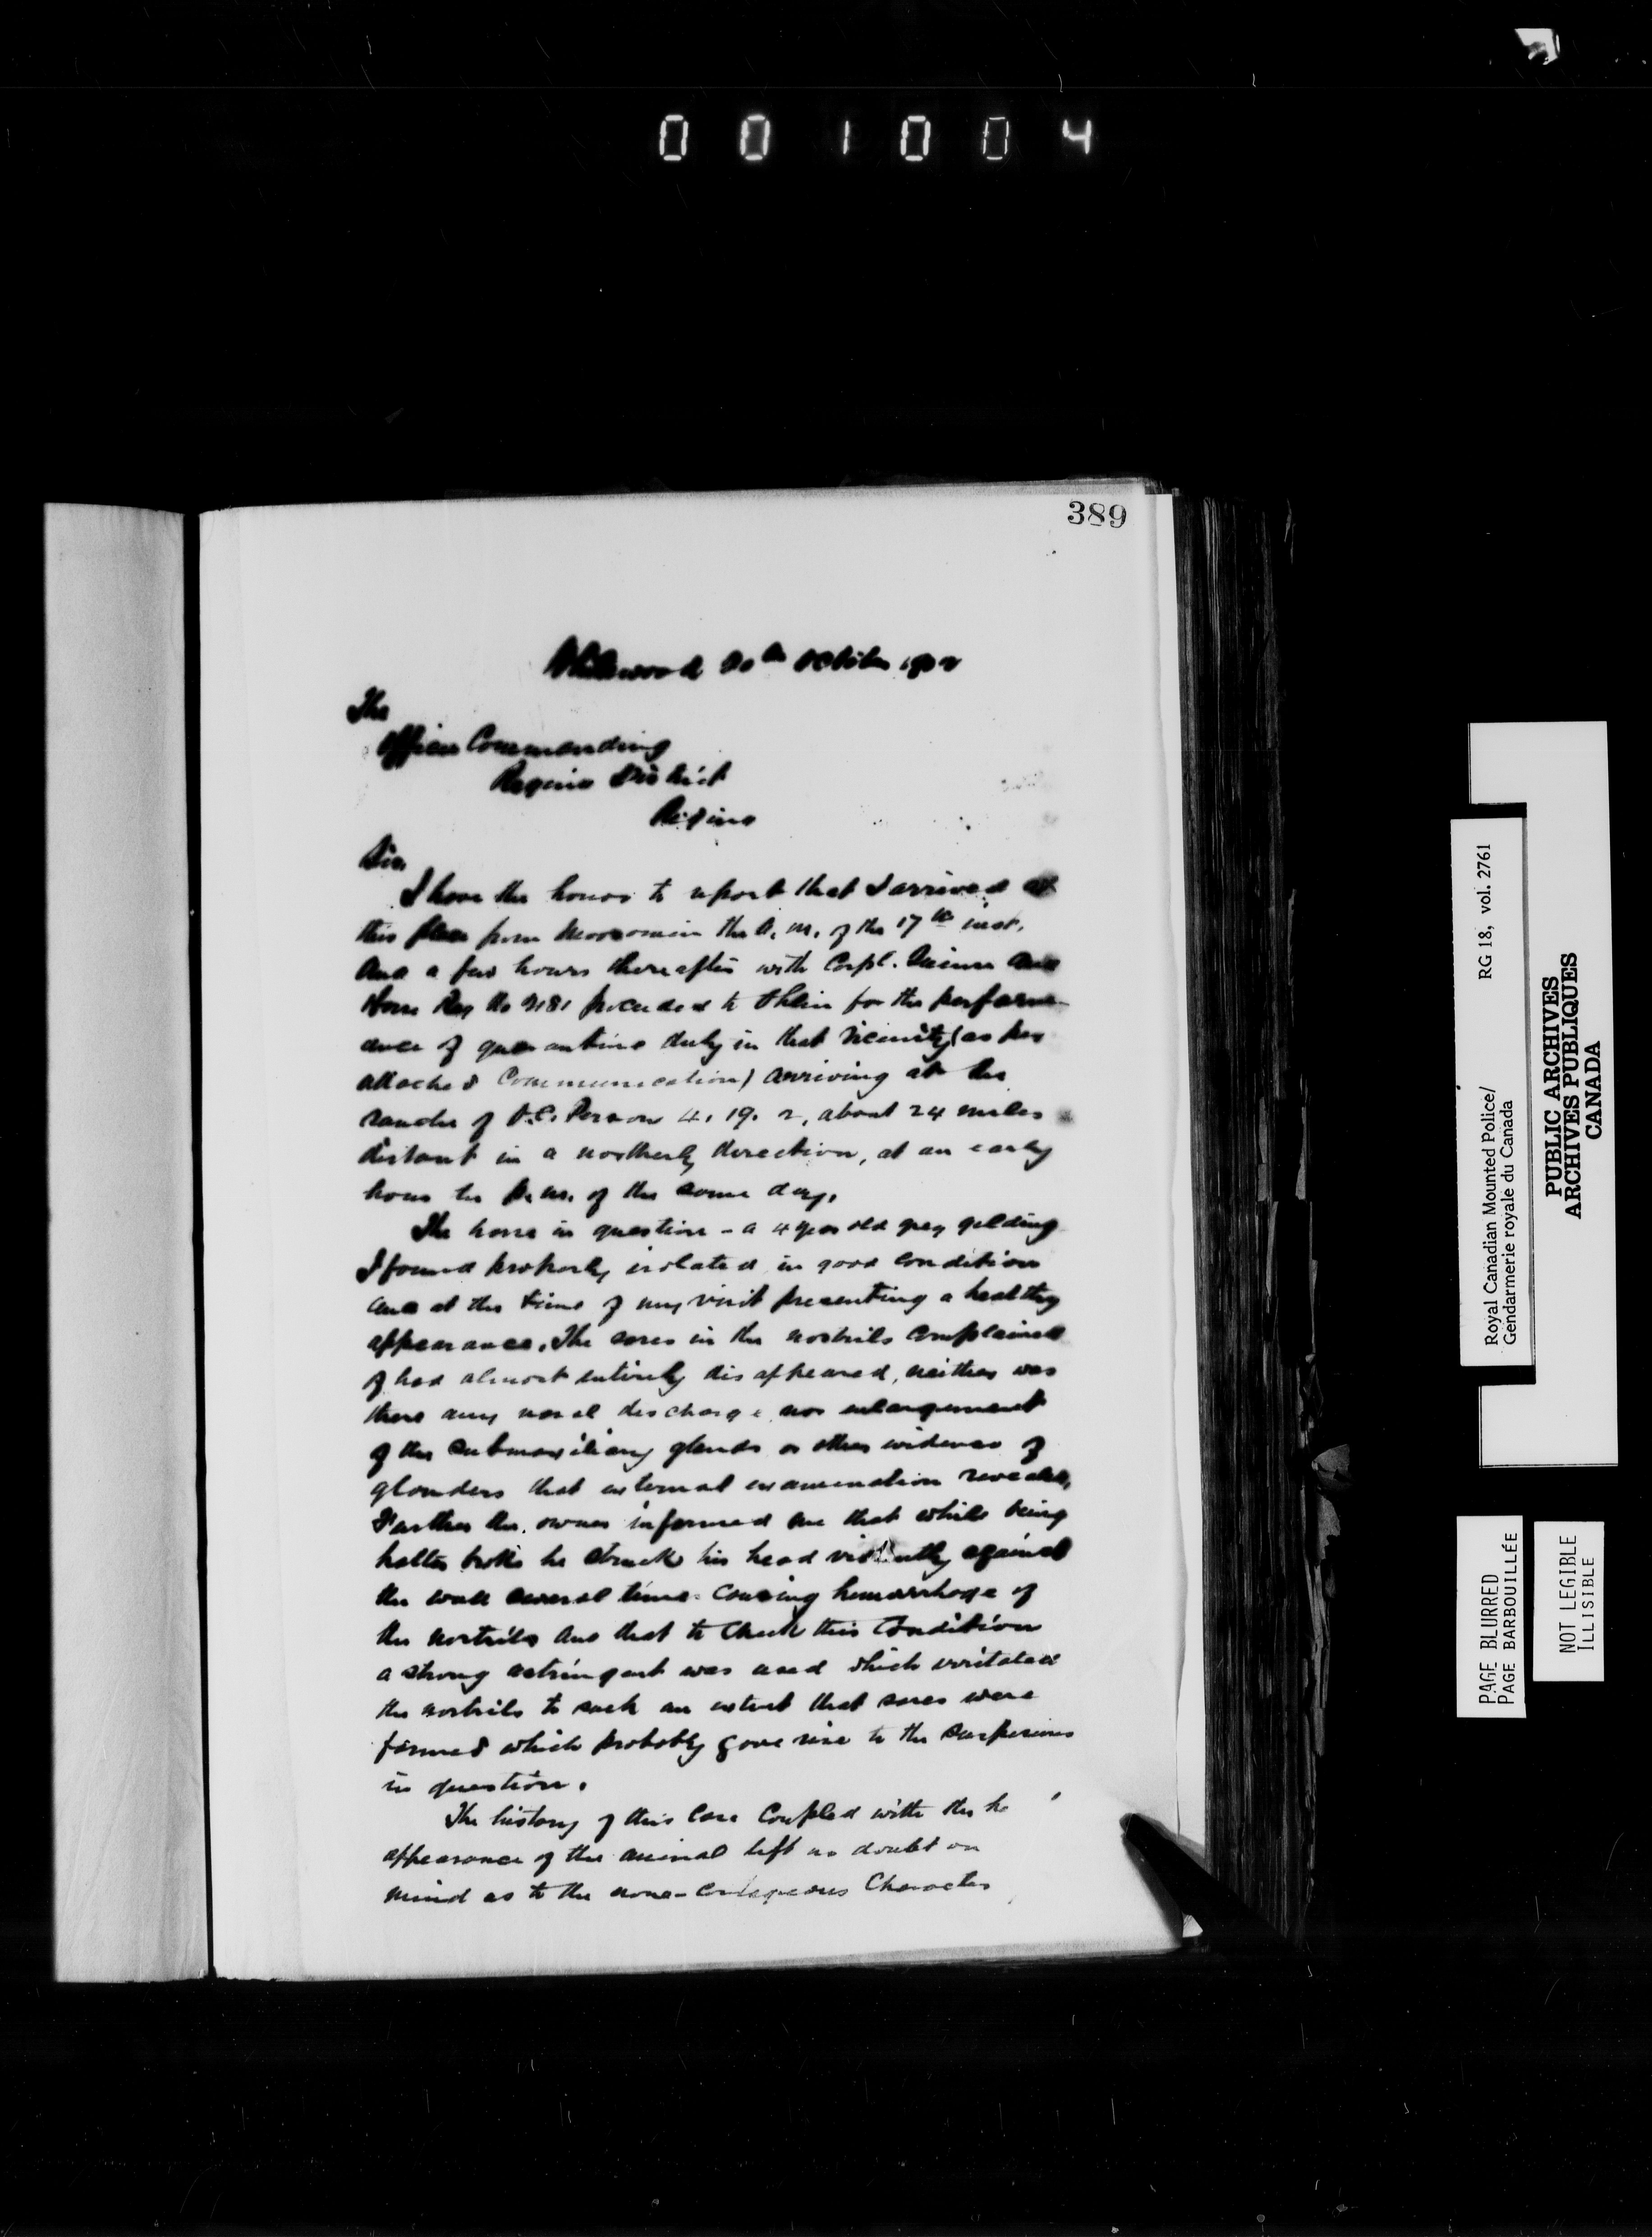 001004
389
Whitewood 20th October 1902
The
Officer Commanding
Regina District
Regina
Sir,
I have the honor to report that I arrived at
this place from Moosomin the A.M. of the 17th inst.
and a few hours thereafter with Corpl. and
Horse Reg No proceeded to Ohlen for the perform-
ance of quarantine duty in that vicinity (as per
attached Communication) arriving at the
ranche of Person 4. 19. 2, about 24 miles
distant in a northerly direction, at an early
hour the P.M. of the same day.
The horse in question - a 4 year old grey gelding
I found properly isolated in good condition
and at the time of my visit presenting a healthy
appearance. The sores in the nostrils complained
of had almost entirely disappeared, neither was
there any nasal discharge nor enlargement
of the submaxiliary glands or other evidence of
glanders that external examination revealed,
Further the owner informed me that while being
halter broke he struck his head violently against
the wall several times causing hemorrhage of
the nostrils and that to check this condition
a strong astringent was used which irritated
the nostrils to such an extent that sores were
formed which probably gave rise to the suspicions
in question.
The history of this case coupled with the he
appearance of the animal left no doubt on
mind as to the none-contageous Character
Royal Canadian Mounted Police/
Gendarmerie royale du Canada
RG 18, vol. 2761
PUBLIC ARCHIVES
ARCHIVES PUBLIQUES
CANADA
PAGE BLURRED
PAGE BARBOUILLÉE
NOT LEGIBLE
ILLISIBLE